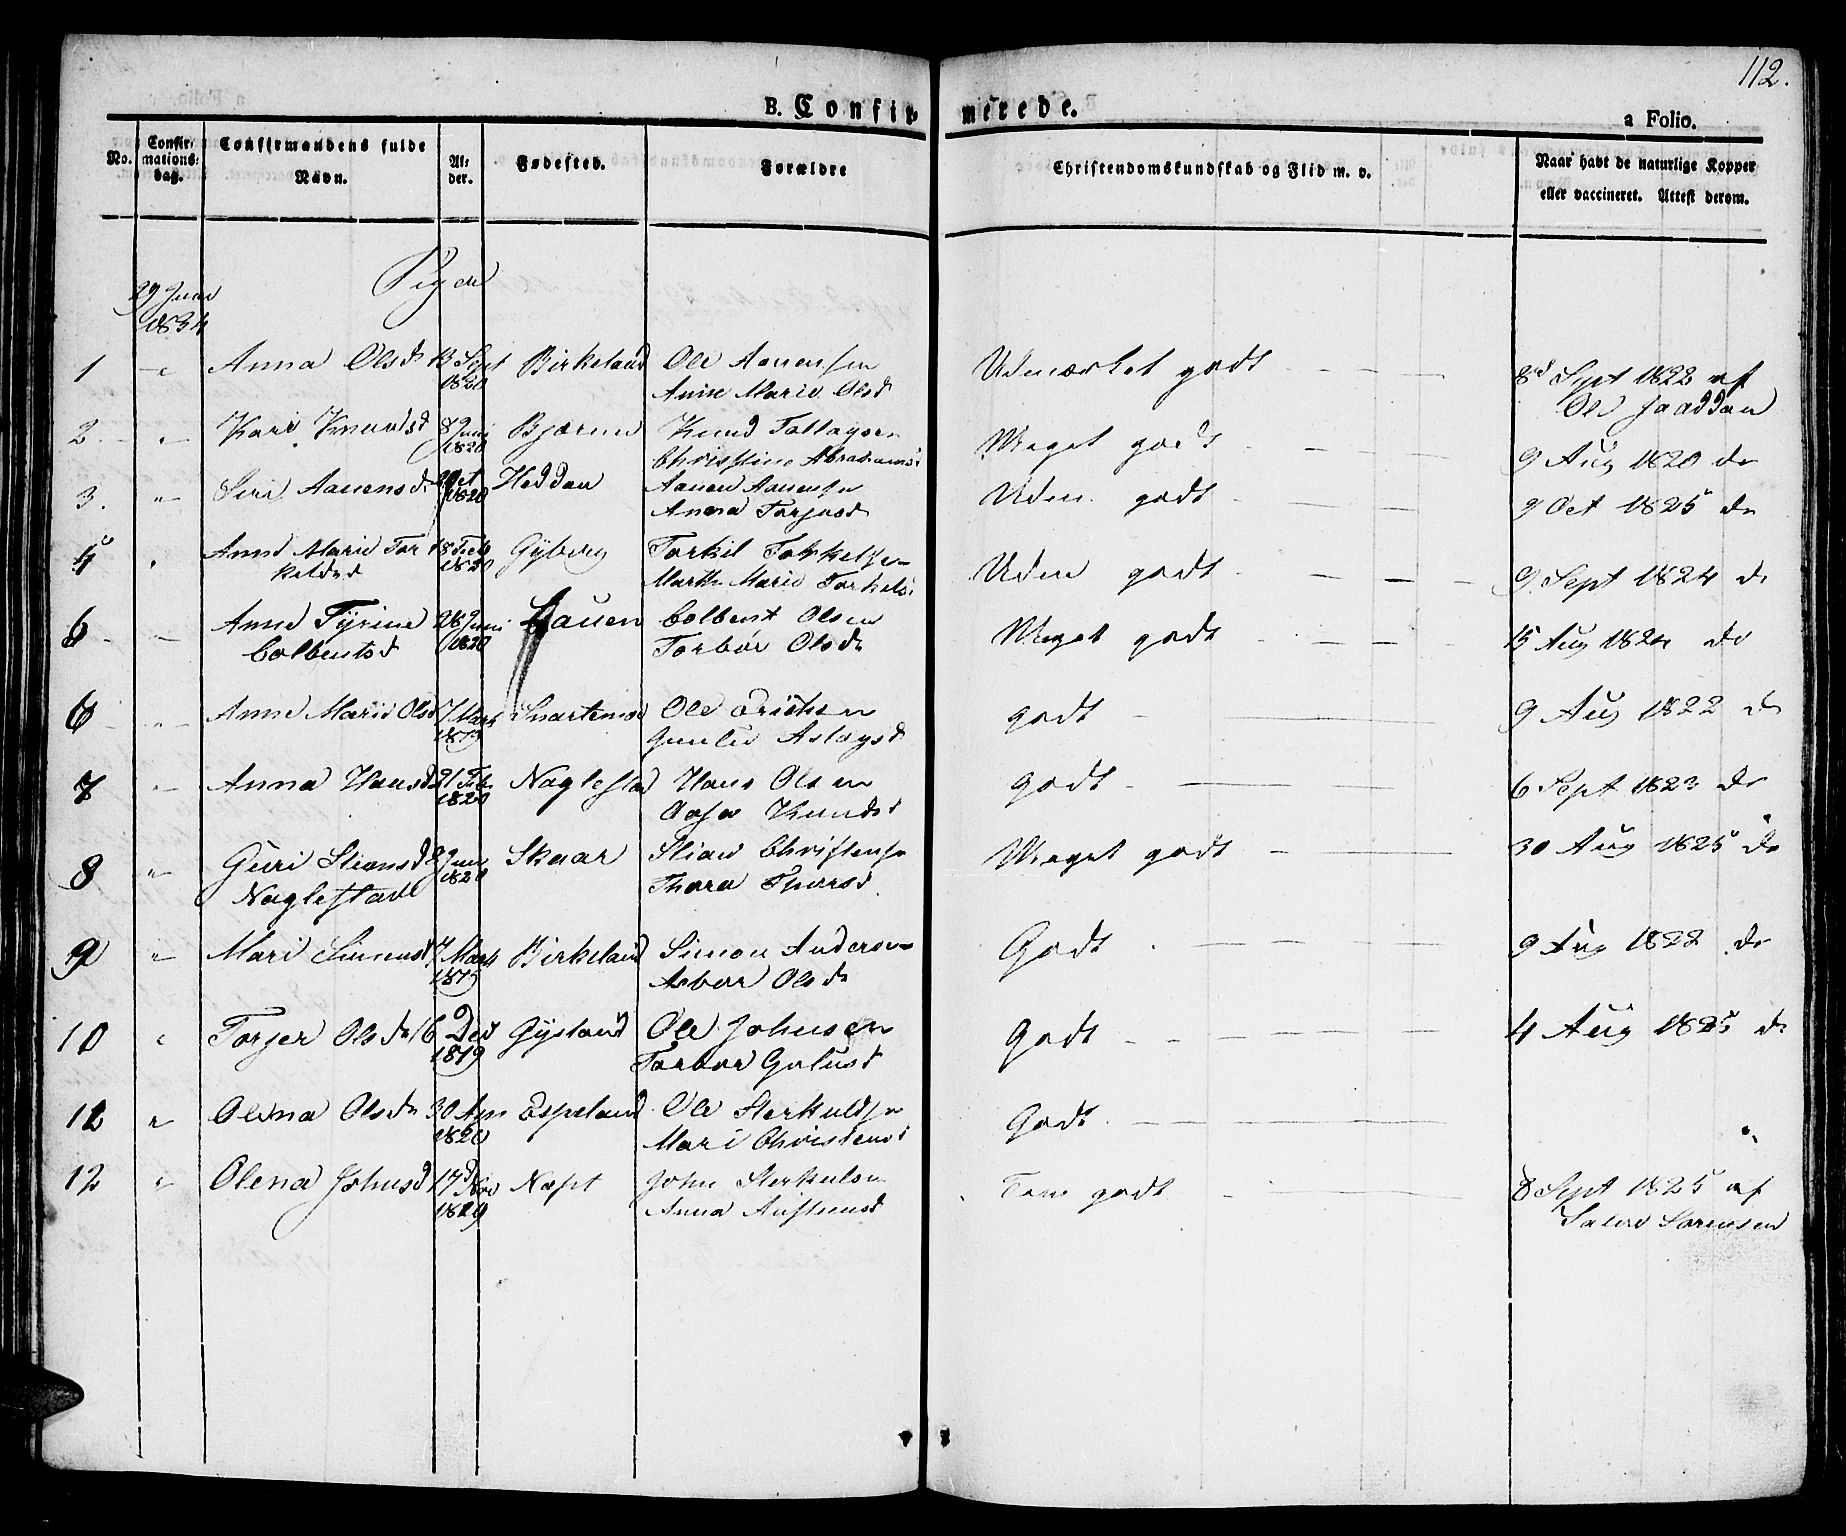 112.
B. Confirmerede.
a Folio.
No. Confirmationsdag. Confirmandens fulde Navn. Alder. Fødested. Forældre Christendomskundskab og Flid m. v. Naar havt de naturlige Kopper eller vaccineret. Attest derom.
29 Juni 1834
Piger
1 " Anna Olsd 13 Sept 1820 Birkeland Ole Aanensen Udmærket godt 8d Sept 1822 af
Anne Marie Olsd Ole
2 " Kari Knudsd 8 Juni 1820 Bjærum Knud Tallagsen Meget godt 9 Aug 1820 do
Christine Abrahamsd
3. " Siri Aanensd Oct 1820 Heddan Aanen Aanensen Udm. godt 9 Oct 1825 do
Anna Torjusd
4 " Anne Marie Tor 18 Feb 1820 Gyberg Torkel Torkelsen Udm godt 9 Sept 1824 do
kelsd Marthe Marie Torkelsd
5 - Anne Tyrine 28 Juni 1820 Lauen Colbent Olsen Meget godt 15 Aug 1824 do
Colbentsd Torbor Olsd
6 " Anne Marie Olsd 7 Mart 1819 Snartemo Ole Erichsen godt 9 Aug 1822 do
Gunild Aslagsd
7 " Anna Hansd 21 Feb 1820 Naglestad Hans Olsen godt 6 Sept 1823 do
Aasa Knudsd
8 " Guri Stiansd Juni 1820 Skaar Stian Christensen Meget godt 30 Aug 1825 do
Naglestad Thora Thorsd
9 " Mari Simonsd 7 Mart 1819 Birkeland Simon Andersen Godt 9 Aug 1822 do
Asbor Olsd
10 " Torjer Olsd 16 Dec 1819 Gysland Ole Johnsen Godt 4 Aug 1825 do
Torbor
11 " Olena Olsd 30 Apr 1820 Espeland Ole Sterkuldsen Godt "
Mari Christensd
12 " Olena Johnsd 14d Nov 1820 Næpt John Sterkulsen Tem godt 8 Sept 1825 af
Anna Austensd Salve Sørensen